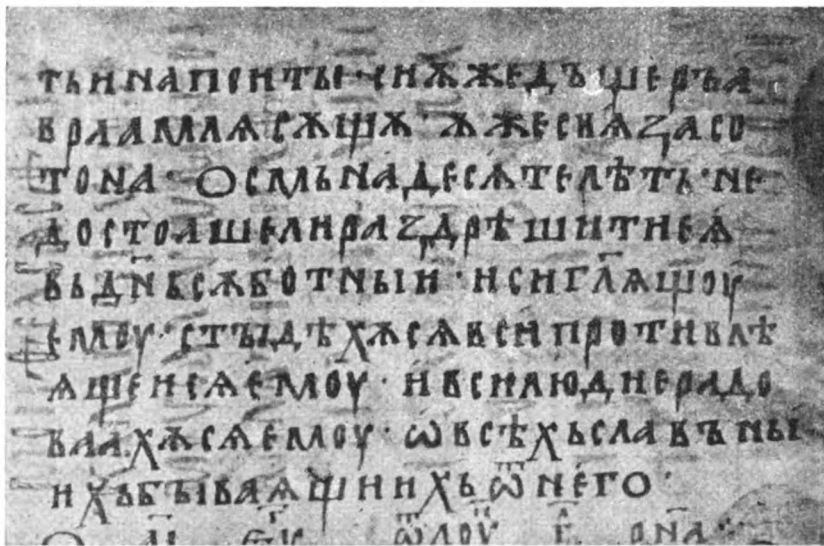 тьинапоитьі·сиѫжедъщеръа
враамлѧсѫщѫ·ѫжесвѧꙁасо
тона·осмьнадесѧтелѣть·не
достоашелираꙁдрѣшитиеѧ
вьдн҃ьсѫботныи·исигл҃ѧщоу
емоу·стъідѣхѫсѧвсипротивлѣ
ѧщеисѧемоу·ивсилюдиерадо
ваахѫсѧемоу·ѡвсѣхьславъны
ихъбъіваѧщиихьѿнего·